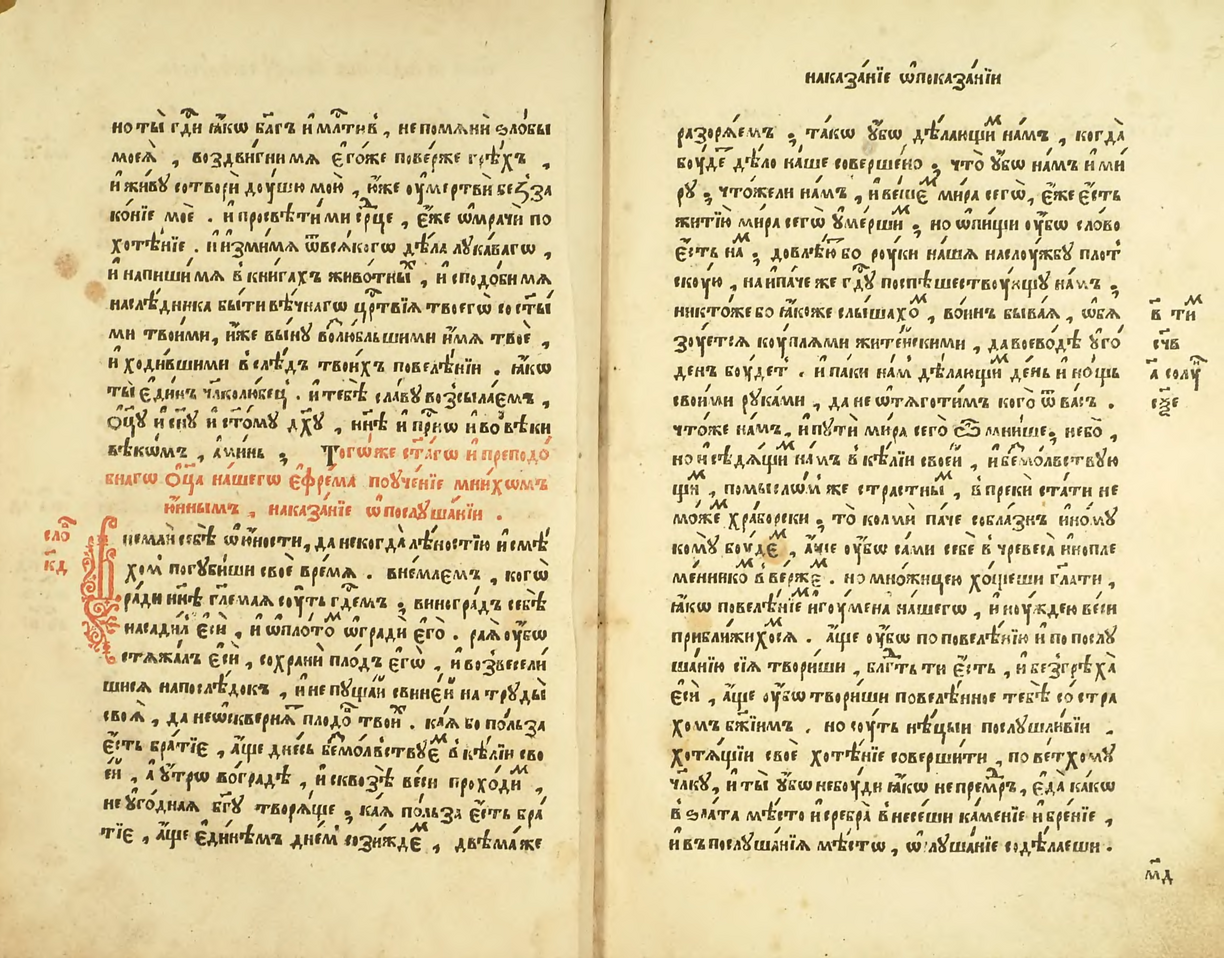 но ты̀ гдⷭ҇и ꙗ҆́кѡ бл҃гъ и҆ млⷭ҇тивъ, не помѧнѝ ѕло́бы
моеѧ̀, воздви́гни мѧ є҆го́же пове́рже грѣ́хъ,
и҆ жи́ву сотворѝ дꙋ́шꙋ мою̀, ю҆́же ѹ҆мертвѝ беꙁ̾за
ко́нїе моѐ. и҆ просвѣти́ ми срⷣце, є҆́же ѡ҆мрачѝ по
хотѣ́нїе. и҆ и҆зми́ мѧ ѿ всѧ́когѡ дѣ́ла лꙋка́вагѡ,
и҆ напиши́ мѧ в̾ кни́гахъ живо́тныⷯ, и҆ сподо́би мѧ
наслѣ́дника бы́ти вѣ́чнагѡ црⷭ҇твїѧ твоегѡ̀ со ст҃ы
ми твои́ми, и҆́же вы́нꙋ возлюбльшими и҆́мѧ твоѐ,
и҆ ходи́вшими в̾слѣ́дъ твои́хъ повелѣ́нїи. ꙗ҆́кѡ
ты̀ є҆ди́нъ чл҃колю́бец̾. и҆ тебѣ̀ сла́вꙋ возсыла́емъ,
ѻ҆ц҃ꙋ и҆ сн҃ꙋ и҆ ст҃о́мꙋ дх҃ꙋ, нн҃ѣ и҆ прⷭ҇нѡ и҆ во вѣ́ки
вѣкѡ́мъ, а҆ми́нь; Тогѡ́же ст҃а́гѡ и҆ преподо́
бнагѡ ѻ҆ц҃а̀ на́шегѡ є҆фре́ма поꙋче́нїе мни́хѡмъ
ю҆́ннымъ, наказа́нїе ѡ҆ послꙋша́нїи.
сло́ⷡ
к҃д
Внема́й себѣ̀ ѡ҆ ю҆́ности, да не когда̀ лѣ́ностїю и҆ смѣ́
хом̾ погꙋби́ши своѐ вре́мѧ. вне́млем̾, когѡ̀
ра́ди нн҃ѣ гл҃емаѧ сꙋ́ть гдⷭ҇емъ; виногра́дъ себѣ̀
насади́л̾ є҆сѝ, и҆ ѡ҆плото́ⷨ ѡ҆градѝ є҆го̀. раѧ̀ ѹ҆́бѡ
стѧжа́лъ є҆сѝ, сохранѝ пло́дъ є҆гѡ̀, и҆ возвесели́
шисѧ напослѣ́док̾, и҆ не пꙋща́й свине́й на трꙋды̀
своѧ̀, да не ѡ҆скверни́ⷮ плодо́ⷡ твои́ⷯ. ка́ѧ бо по́льза
є҆́сть бра́тїе, а҆́ще дне́сь безмо́лвствꙋеⷨ в̾ кѣ́лїи сво
е́й, а҆ ꙋ҆́трѡ во гра́дѣ, и҆ сквозѣ̀ ве́си прохо́диⷨ,
не ꙋ҆го́дная бг҃ꙋ творѧ́ще; ка́ѧ по́льза є҆́сть бра́
тїе, а҆́ще є҆ди́нѣмъ дне́м̾ сози́ждеⷨ, двѣма́ же
наказа́нїе ѡ҆ показа́нїи
разорѧ́емъ; та́кѡ ꙋ҆́бѡ дѣ́лающиⷨ на́мъ, когда̀
бꙋ́деⷮ дѣ́ло на́ше соверше́но; что̀ ꙋ҆́бѡ на́мъ и҆ ми́
рꙋ; что́ же ли на́мъ, и҆ ве́щеⷨ ми́ра сегѡ̀, є҆́же є҆́сть
житїю̀ ми́ра сегѡ̀ ꙋ҆ме́ршиⷨ; но ѡ҆пи́ши ѹ҆́бѡ сло́во
є҆́сть на́ⷨ; довлѣ́юⷮ бо рꙋ́ки на́шѧ на слꙋ́жбꙋ пло́т̾
скꙋю, наипа́че же гдⷭ҇ꙋ поспѣ́шествꙋющꙋ на́мъ;
никто́же бо ꙗ҆́коже слы́шахоⷨ, во́инъ быва́ѧ, ѡ҆бѧ
зꙋ́етсѧ кꙋ́плѧми жите́йскими, да воево́дѣ ꙋ҆го́
ден̾ бꙋ́дет̾. и҆ па́ки на́м̾ дѣ́лающиⷨ де́нь и҆ но́щь
свои́ми рꙋка́ми, да не ѡ҆тѧготи́мъ кого̀ ѿ ва́съ.
что́же на́мъ, и҆ пꙋтѝ ми́ра сего̀ ѽ мни́ше; не бо̀,
но и҆ сѣдѧ́щиⷨ на́мъ в̾ кѣ́лїи свое́й, и҆ безмо́лвствꙋю
щиⷨ, по́мыслѡм̾ же стра́стныⷨ, в̾преки̾ ста́ти не
мо́жеⷨ хра́борски; то̀ ко́лмѝ па́че собла́знъ и҆но́мꙋ
комꙋ̀ бꙋ́деⷨ, а҆́ще ѹ҆́бѡ са́ми себѐ в̾ чревеса̀ и҆нопле́
ме́нникоⷨ вве́ржеⷨ. но мно́жицею хо́щеши гл҃ати,
ꙗ҆́кѡ повелѣ́нїеⷨ и҆гꙋ́мена на́шегѡ, и҆ нꙋ́ждею ве́си
прибли́жихсѧ. а҆́ще ѹ҆́бѡ по повелѣ́нїю и҆ по послꙋ
ша́нїю сїѧ̀ твори́ши, бл҃гⷣть ти є҆́сть, и҆ без̾ грѣха̀
є҆сѝ, а҆́ще ѹ҆́бѡ твори́ши повелѣ́нное тебѣ̀ со стра́
хомъ бж҃їимъ. но сꙋ́ть нѣ́цыи послꙋшли́вїи,
хотѧ́щїи своѐ хотѣ́нїе соверши́ти, по ве́тхомꙋ
чл҃кꙋ, и҆ ты̀ ꙋ҆́бѡ не бꙋ́ди ꙗ҆́кѡ не премⷣръ, є҆да̀ ка́кѡ
в̾ зла́та мѣ́сто и҆ сребра̀ внесе́ши ка́менїе и҆ бре́нїе,
и҆ въ послꙋша́нїѧ мѣ́стѡ, ѡ҆слꙋша́нїе содѣ́лаеши.
в҃ ти́ⷨ
сч҃в
а҃ солꙋ́ⷩ
сѯ҃е
м҃д